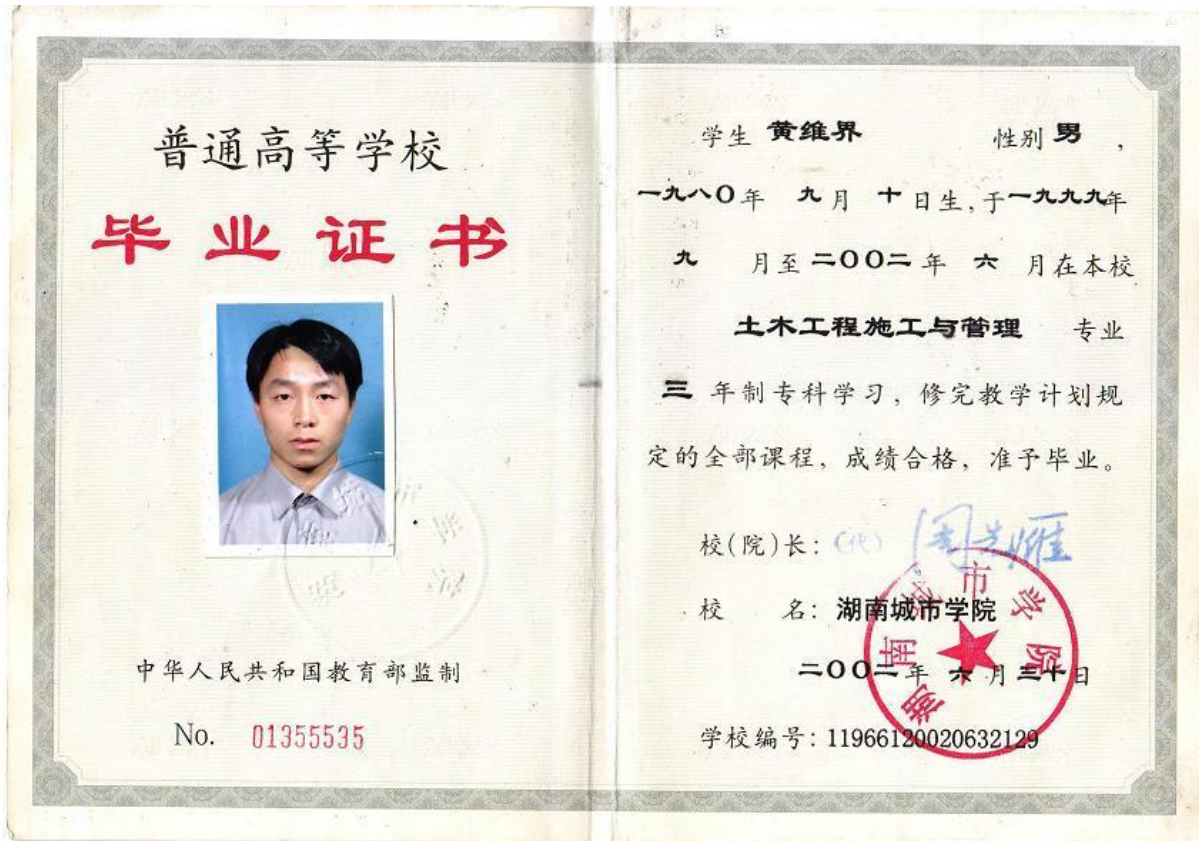 普通高等学校
毕业证书
中华人民共和国教育部监制
No. 01355535
学生 黄维界 性别 男 ,
一九八〇年 九月 十日生,于一九九九年
九 月至二〇〇二年 六 月在本校
土木工程施工与管理 专业
三 年制专科学习, 修完教学计划规
定的全部课程, 成绩合格, 准予毕业。
校(院)长: (代)
校 名: 湖南城市学院
二〇〇二年 六月三十日
学校编号: 11966120020632129
湖南城市学院